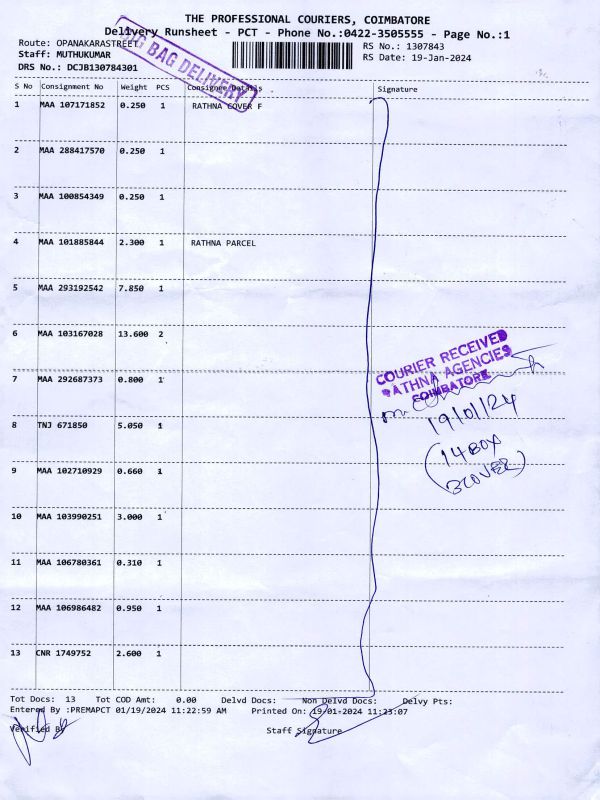 THE PROFESSIONAL COURIERS, COIMBATORE
Delivery Runsheet - PCT - Phone No.:0422-3505555 - Page No.:1
Route: OPANAKARASTREET
RS No.: 1307843
Staff: MUTHUKUMAR
RS Date: 19-Jan-2024
DRS No.: DCJB130784301
BAG DELIVERY
S No Consignment No Weight PCS Consignee Details Signature
1 MAA 107171852 0.250 1 RATHNA COVER F
2 MAA 288417570 0.250 1
3 MAA 100854349 0.250 1
4 MAA 101885844 2.300 1 RATHNA PARCEL
5 MAA 293192542 7.850 1
6 MAA 103167028 13.600 2
COURIER RECEIVED
RATHNA AGENCIES
COIMBATORE
7 MAA 292687373 0.800 1
19/01/24
8 TNJ 671850 5.050 1
(14 BOX
3 COVER)
9 MAA 102710929 0.660 1
10 MAA 103990251 3.000 1
11 MAA 106780361 0.310 1
12 MAA 106986482 0.950 1
13 CNR 1749752 2.600 1
Tot Docs: 13 Tot COD Amt: 0.00 Delvd Docs: Non Delvd Docs: Delvy Pts:
Entered By :PREMAPCT 01/19/2024 11:22:59 AM Printed On: 19-01-2024 11:23:07
Verified By Staff Signature